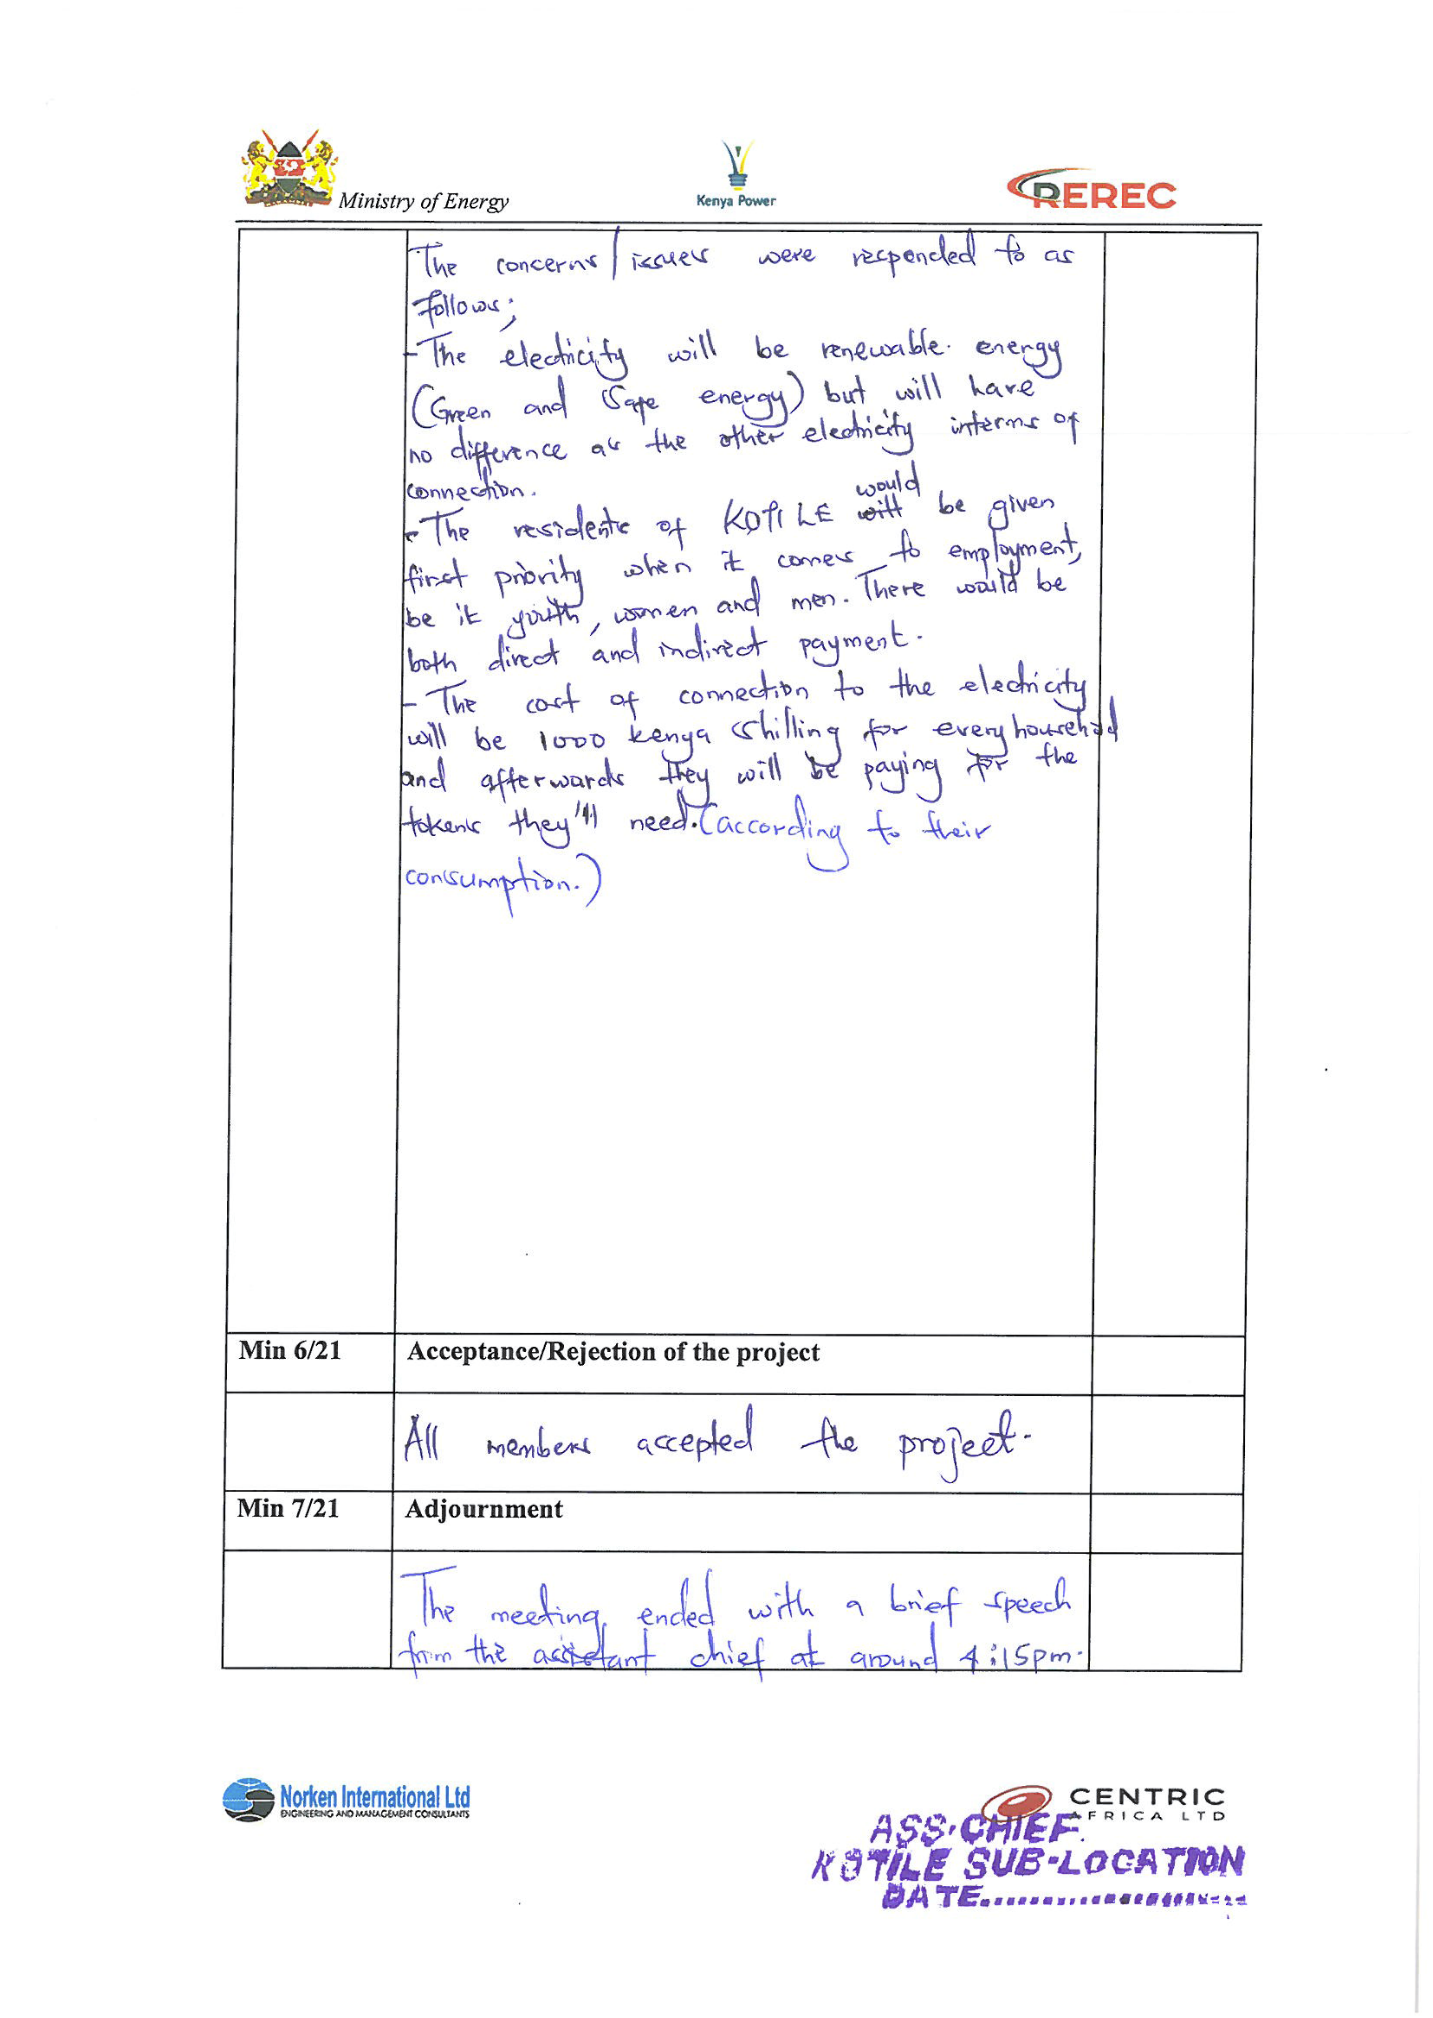 Ministry of Energy
Kenya Power
REREC
The concerns/issues were responded to as
follows;
- The electricity will be renewable energy
(Green and Safe energy) but will have
no difference as the other electricity interms of
connection.
- The residents of KOTILE would be given
first priority when it comes to employment,
be it youth, women and men. There would be
both direct and indirect payment.
- The cost of connection to the electricity
will be 1000 kenya shilling for every household
and afterwards they will be paying for the
tokens they'll need. (according to their
consumption.)
Min 6/21 Acceptance/Rejection of the project
All members accepted the project.
Min 7/21 Adjournment
The meeting ended with a brief speech
from the assistant chief at around 4:15pm.
Norken International Ltd
ENGINEERING AND MANAGEMENT CONSULTANTS
CENTRIC
AFRICA LTD
ASS. CHIEF.
KOTILE SUB-LOCATION
DATE..........................